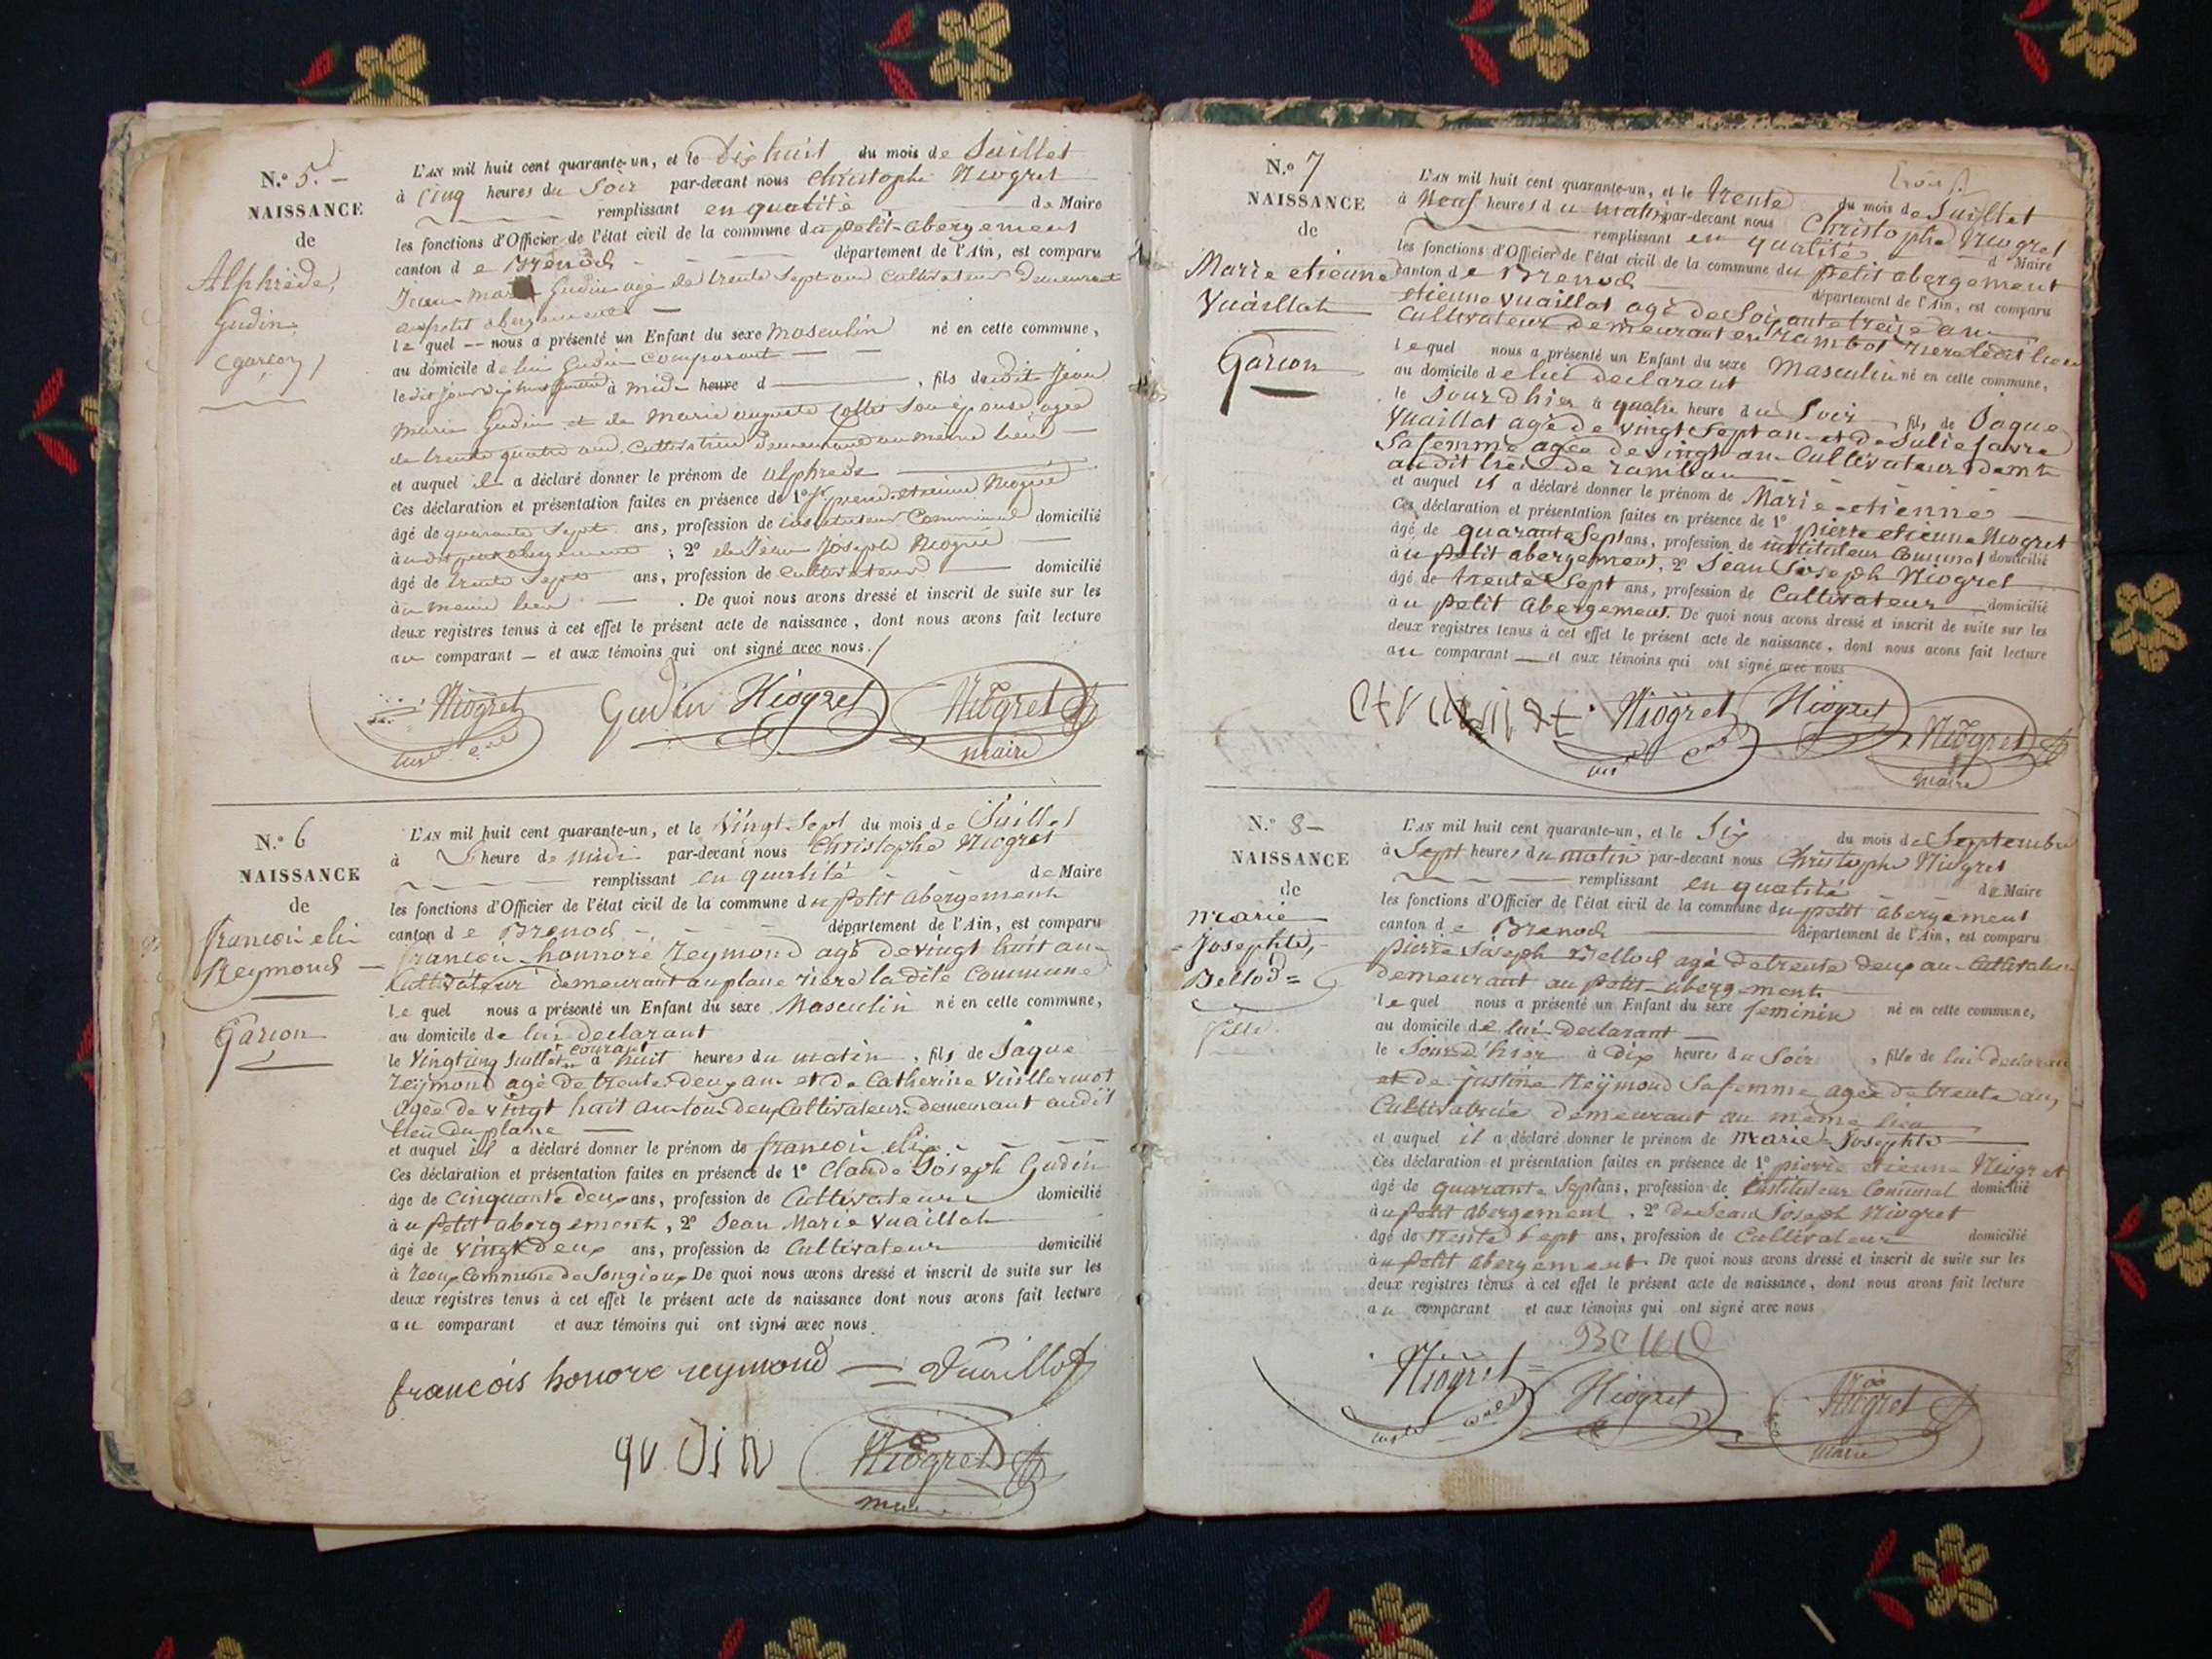 N.° 5. —
NAISSANCE
de
Alphrède,
Gudin
(garçon)
L'AN mil huit cent quarante-un, et le Dix huit du mois de Juillet
à Cinq heures du Soir par-devant nous Christophe Niogret
remplissant en qualité de Maire
les fonctions d'Officier de l'état civil de la commune du petit-abergement
canton de Brenod département de l'Ain, est comparu
Jean marie Gudin agé de trente Sept ans Cultivateur Demeurant
au petit abergement —
le quel — nous a présenté un Enfant du sexe masculin né en cette commune,
au domicile de lui Gudin comparant — —
le dit jour dix huit à midi heure d , fils dudit Jean
Marie Gudin et de Marie auguste Collet Son épouse, agée
de trente quatre ans Cultivatrice Demeurant au même lieu —
et auquel il a déclaré donner le prénom de alphrede
Ces déclaration et présentation faites en présence de 1° pierre etienne Niogret
âgé de quarante Sept ans, profession de instituteur Communal domicilié
audit petit abergement ; 2° de Jean Joseph Niogret —
âgé de trente Sept ans, profession de Cultivateur domicilié
au meme lieu — . De quoi nous avons dressé et inscrit de suite sur les
deux registres tenus à cet effet le présent acte de naissance, dont nous avons fait lecture
au comparant — et aux témoins qui ont signé avec nous. /
Niogret Gudin Niogret Niogret
maire
N.° 6
NAISSANCE
de
francois elix
Reymond —
Garcon
L'AN mil huit cent quarante-un, et le Vingt Sept du mois de Juillet
à heure de midi par-devant nous Christophe Niogret
remplissant en qualité de Maire
les fonctions d'Officier de l'état civil de la commune du petit abergement
canton de Brenod département de l'Ain, est comparu
francois honnoré Reymond agé de vingt huit an
Cultivateur demeurant au plane riere la dite Commune
le quel nous a présenté un Enfant du sexe Masculin né en cette commune,
au domicile de lui declarant
le Vingt cinq Juillet courant à huit heures du matin, fils de Jaque
Reymond agé de trente deux ans et de Catherine Vuillermot
agée de vingt huit an tous deux Cultivateurs demeurant audit
lieu du plane —
et auquel il a déclaré donner le prénom de francois elix
Ces déclaration et présentation faites en présence de 1° Claude Joseph Gudin
âge de Cinquante deux ans, profession de Cultivateur domicilié
au petit abergement, 2° Jean Marie Vuaillat
âgé de vingt deux ans, profession de Cultivateur domicilié
à Commune de Songieux De quoi nous avons dressé et inscrit de suite sur les
deux registres tenus à cet effet le présent acte de naissance dont nous avons fait lecture
au comparant et aux témoins qui ont signé avec nous.
francois honore reymond — Vuaillat
gudin Niogret
maire
N.° 7
NAISSANCE
de
Marie etienne
Vuaillat
Garcon
L'AN mil huit cent quarante-un, et le trente du mois de Juillet
à Neuf heures du matin par-devant nous Christophe Niogret
remplissant en qualité d Maire
les fonctions d'Officier de l'état civil de la commune du petit abergement
canton de Brenod département de l'Ain, est comparu
etienne Vuaillat agé de Soixante treize an
Cultivateur demeurant en riere ledit lieu
lequel nous a présenté un Enfant du sexe Masculin né en cette commune,
au domicile de lui declarant
le Jour dhier à quatre heure du Soir fils de Jaque
Vuaillat agé de vingt Sept an et de Julie favre
Sa femme agée de vingt an Cultivateurs demt
audit lieu de
et auquel il a déclaré donner le prénom de Marie-etienne —
Ces déclaration et présentation faites en présence de 1° pierre etienne Niogret
âgé de quarante Sept ans, profession de instituteur Comunal domicilié
au petit abergement, 2° Jean Joseph Niogret
âgé de trente Sept ans, profession de Cultivateur domicilié
au petit abergement. De quoi nous avons dressé et inscrit de suite sur les
deux registres tenus à cet effet le présent acte de naissance, dont nous avons fait lecture
au comparant — et aux témoins qui ont signé avec nous
Niogret Niogret Niogret
maire
N.° 8 —
NAISSANCE
de
marie
Josephte,
Bellod =
fille.
L'AN mil huit cent quarante-un, et le Six du mois de Septembre
à Sept heures du matin par-devant nous Christophe Niogret
remplissant en qualité de Maire
les fonctions d'Officier de l'état civil de la commune du petit abergement
canton de Brenod département de l'Ain, est comparu
pierre Joseph Bellod agé de trente deux an Cultivateur
demeurant au petit abergement
lequel nous a présenté un Enfant du sexe feminin né en cette commune,
au domicile de lui Declarant —
le Jour d'hier à Dix heures du Soir , fille de lui declarant
et de justine Reymond Sa femme agée de trente an,
Cultivatrice demeurant au même lieu
et auquel il a déclaré donner le prénom de Marie = Josephte
Ces déclaration et présentation faites en présence de 1° pierre etienne Niogret
âgé de quarante Sept ans, profession de instituteur Comunal domicilié
au petit abergement, 2° de Jean Joseph Niogret
âgé de trente Sept ans, profession de Cultivateur domicilié
au petit abergement. De quoi nous avons dressé et inscrit de suite sur les
deux registres tenus à cet effet le présent acte de naissance, dont nous avons fait lecture
au comparant et aux témoins qui ont signé avec nous
Bellod
Niogret Niogret Niogret
maire